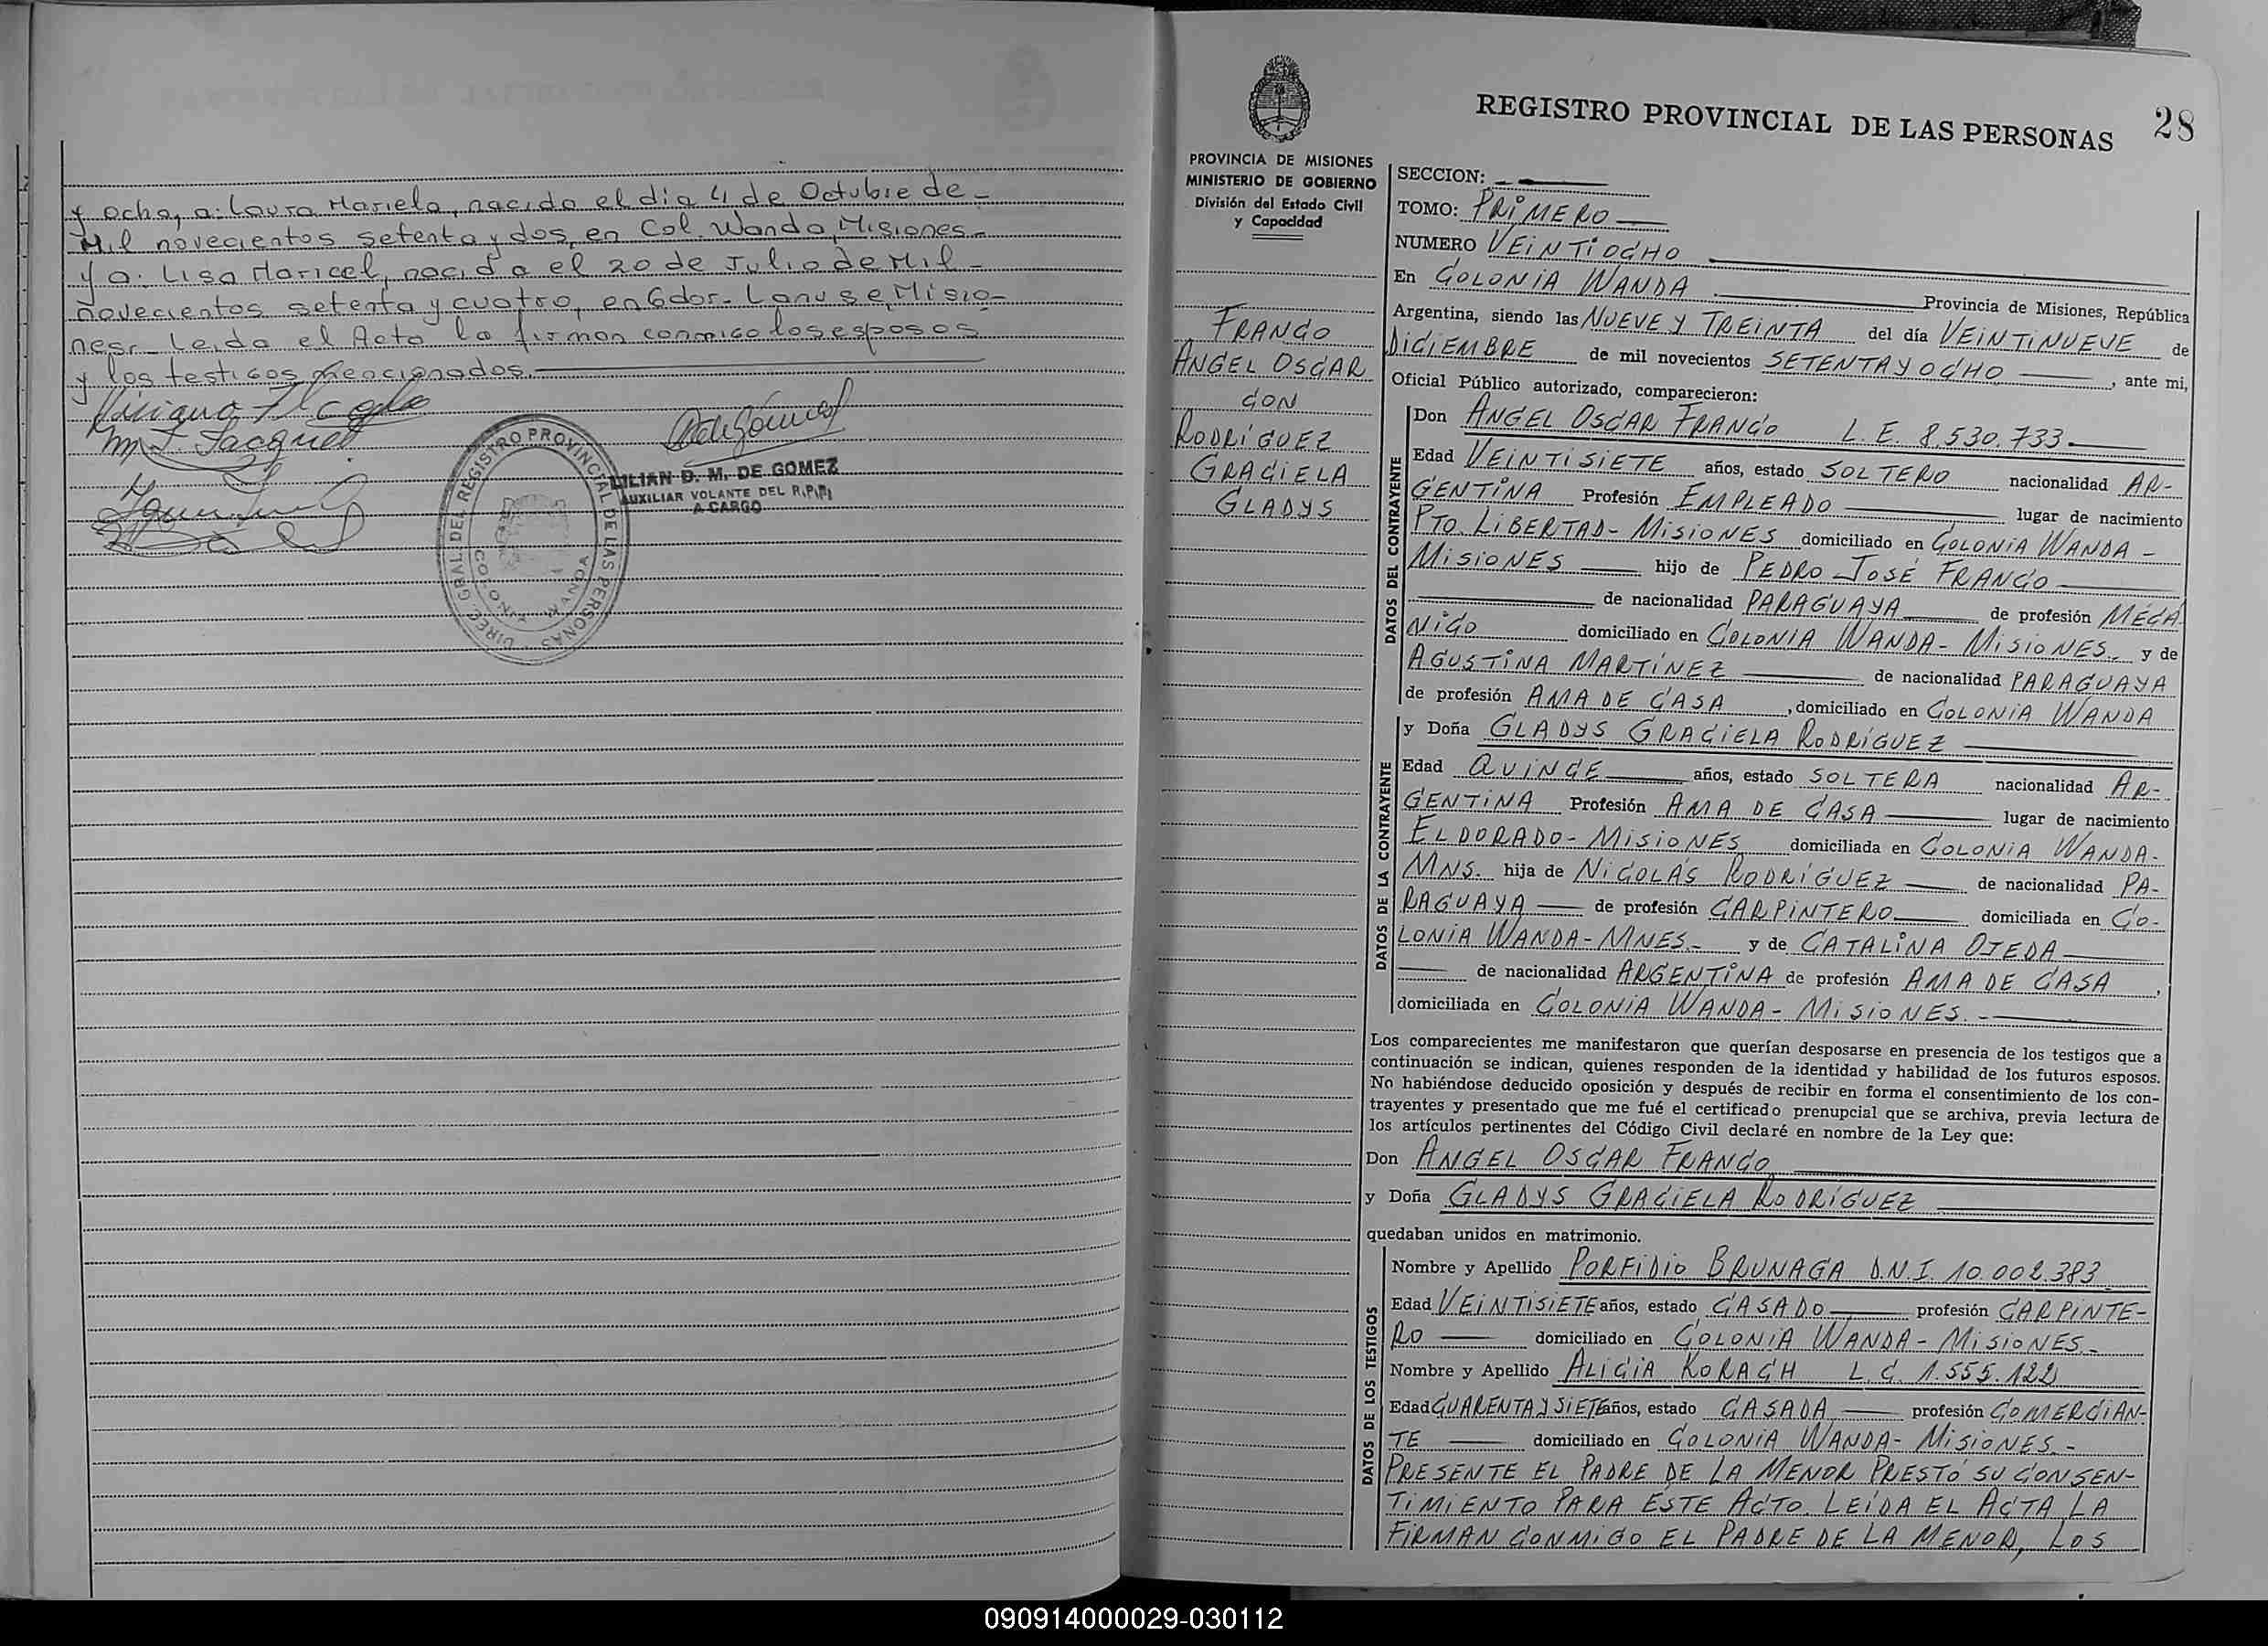 y ocho, a: Laura Mariela, nacida el día 4 de Octubre de -
Mil novecientos setenta y dos, en Col. Wanda, Misiones.-
y a: Lisa Maricel, nacida el 20 de Julio de Mil -
novecientos setenta y cuatro, en Gdor. Lanusse, Misio-
nes.- Leida el Acta la firman conmigo los esposos
y los testigos mencionados.-
LILIAN D. M. DE GOMEZ
AUXILIAR VOLANTE DEL R.P.P.
A CARGO
DIREC. GRAL. DEL REGISTRO PROVINCIAL DE LAS PERSONAS
COLONIA WANDA
REGISTRO PROVINCIAL DE LAS PERSONAS
28
PROVINCIA DE MISIONES
MINISTERIO DE GOBIERNO
División del Estado Civil
y Capacidad
FRANCO
ANGEL OSCAR
CON
RODRÍGUEZ
GRACIELA
GLADYS
SECCION: -
TOMO: PRIMERO
NUMERO VEINTIOCHO
En COLONIA WANDA Provincia de Misiones, República
Argentina, siendo las NUEVE Y TREINTA del día VEINTINUEVE de
DICIEMBRE de mil novecientos SETENTA Y OCHO, ante mi,
Oficial Público autorizado, comparecieron:
DATOS DEL CONTRAYENTE
Don ANGEL OSCAR FRANCO L.E. 8.530.733.
Edad VEINTISIETE años, estado SOLTERO nacionalidad AR-
GENTINA Profesión EMPLEADO lugar de nacimiento
PTO. LIBERTAD - MISIONES domiciliado en COLONIA WANDA -
MISIONES hijo de PEDRO JOSÉ FRANCO
de nacionalidad PARAGUAYA de profesión MECÁ
NICO domiciliado en COLONIA WANDA - MISIONES.- y de
AGUSTINA MARTÍNEZ de nacionalidad PARAGUAYA
de profesión AMA DE CASA, domiciliado en COLONIA WANDA
DATOS DE LA CONTRAYENTE
y Doña GLADYS GRACIELA RODRÍGUEZ
Edad QUINCE años, estado SOLTERA nacionalidad AR-
GENTINA Profesión AMA DE CASA lugar de nacimiento
ELDORADO - MISIONES domiciliada en COLONIA WANDA -
MNS. hija de NICOLÁS RODRÍGUEZ de nacionalidad PA-
RAGUAYA de profesión CARPINTERO domiciliada en CO-
LONIA WANDA - MNES.- y de CATALINA OJEDA
de nacionalidad ARGENTINA de profesión AMA DE CASA,
domiciliada en COLONIA WANDA - MISIONES.-
Los comparecientes me manifestaron que querían desposarse en presencia de los testigos que a
continuación se indican, quienes responden de la identidad y habilidad de los futuros esposos.
No habiéndose deducido oposición y después de recibir en forma el consentimiento de los con-
trayentes y presentado que me fué el certificado prenupcial que se archiva, previa lectura de
los artículos pertinentes del Código Civil declaré en nombre de la Ley que:
Don ANGEL OSCAR FRANCO
y Doña GLADYS GRACIELA RODRÍGUEZ
quedaban unidos en matrimonio.
DATOS DE LOS TESTIGOS
Nombre y Apellido PORFIDIO BRUNAGA D.N.I. 10.002.383
Edad VEINTISIETE años, estado CASADO profesión CARPINTE-
RO domiciliado en COLONIA WANDA - MISIONES.-
Nombre y Apellido ALICIA KORACH L.C. 1.555.122
Edad CUARENTA Y SIETE años, estado CASADA profesión COMERCIAN-
TE domiciliado en COLONIA WANDA - MISIONES.-
PRESENTE EL PADRE DE LA MENOR PRESTÓ SU CONSEN-
TIMIENTO PARA ESTE ACTO. LEÍDA EL ACTA LA
FIRMAN CONMIGO EL PADRE DE LA MENOR, LOS
090914000029-030112